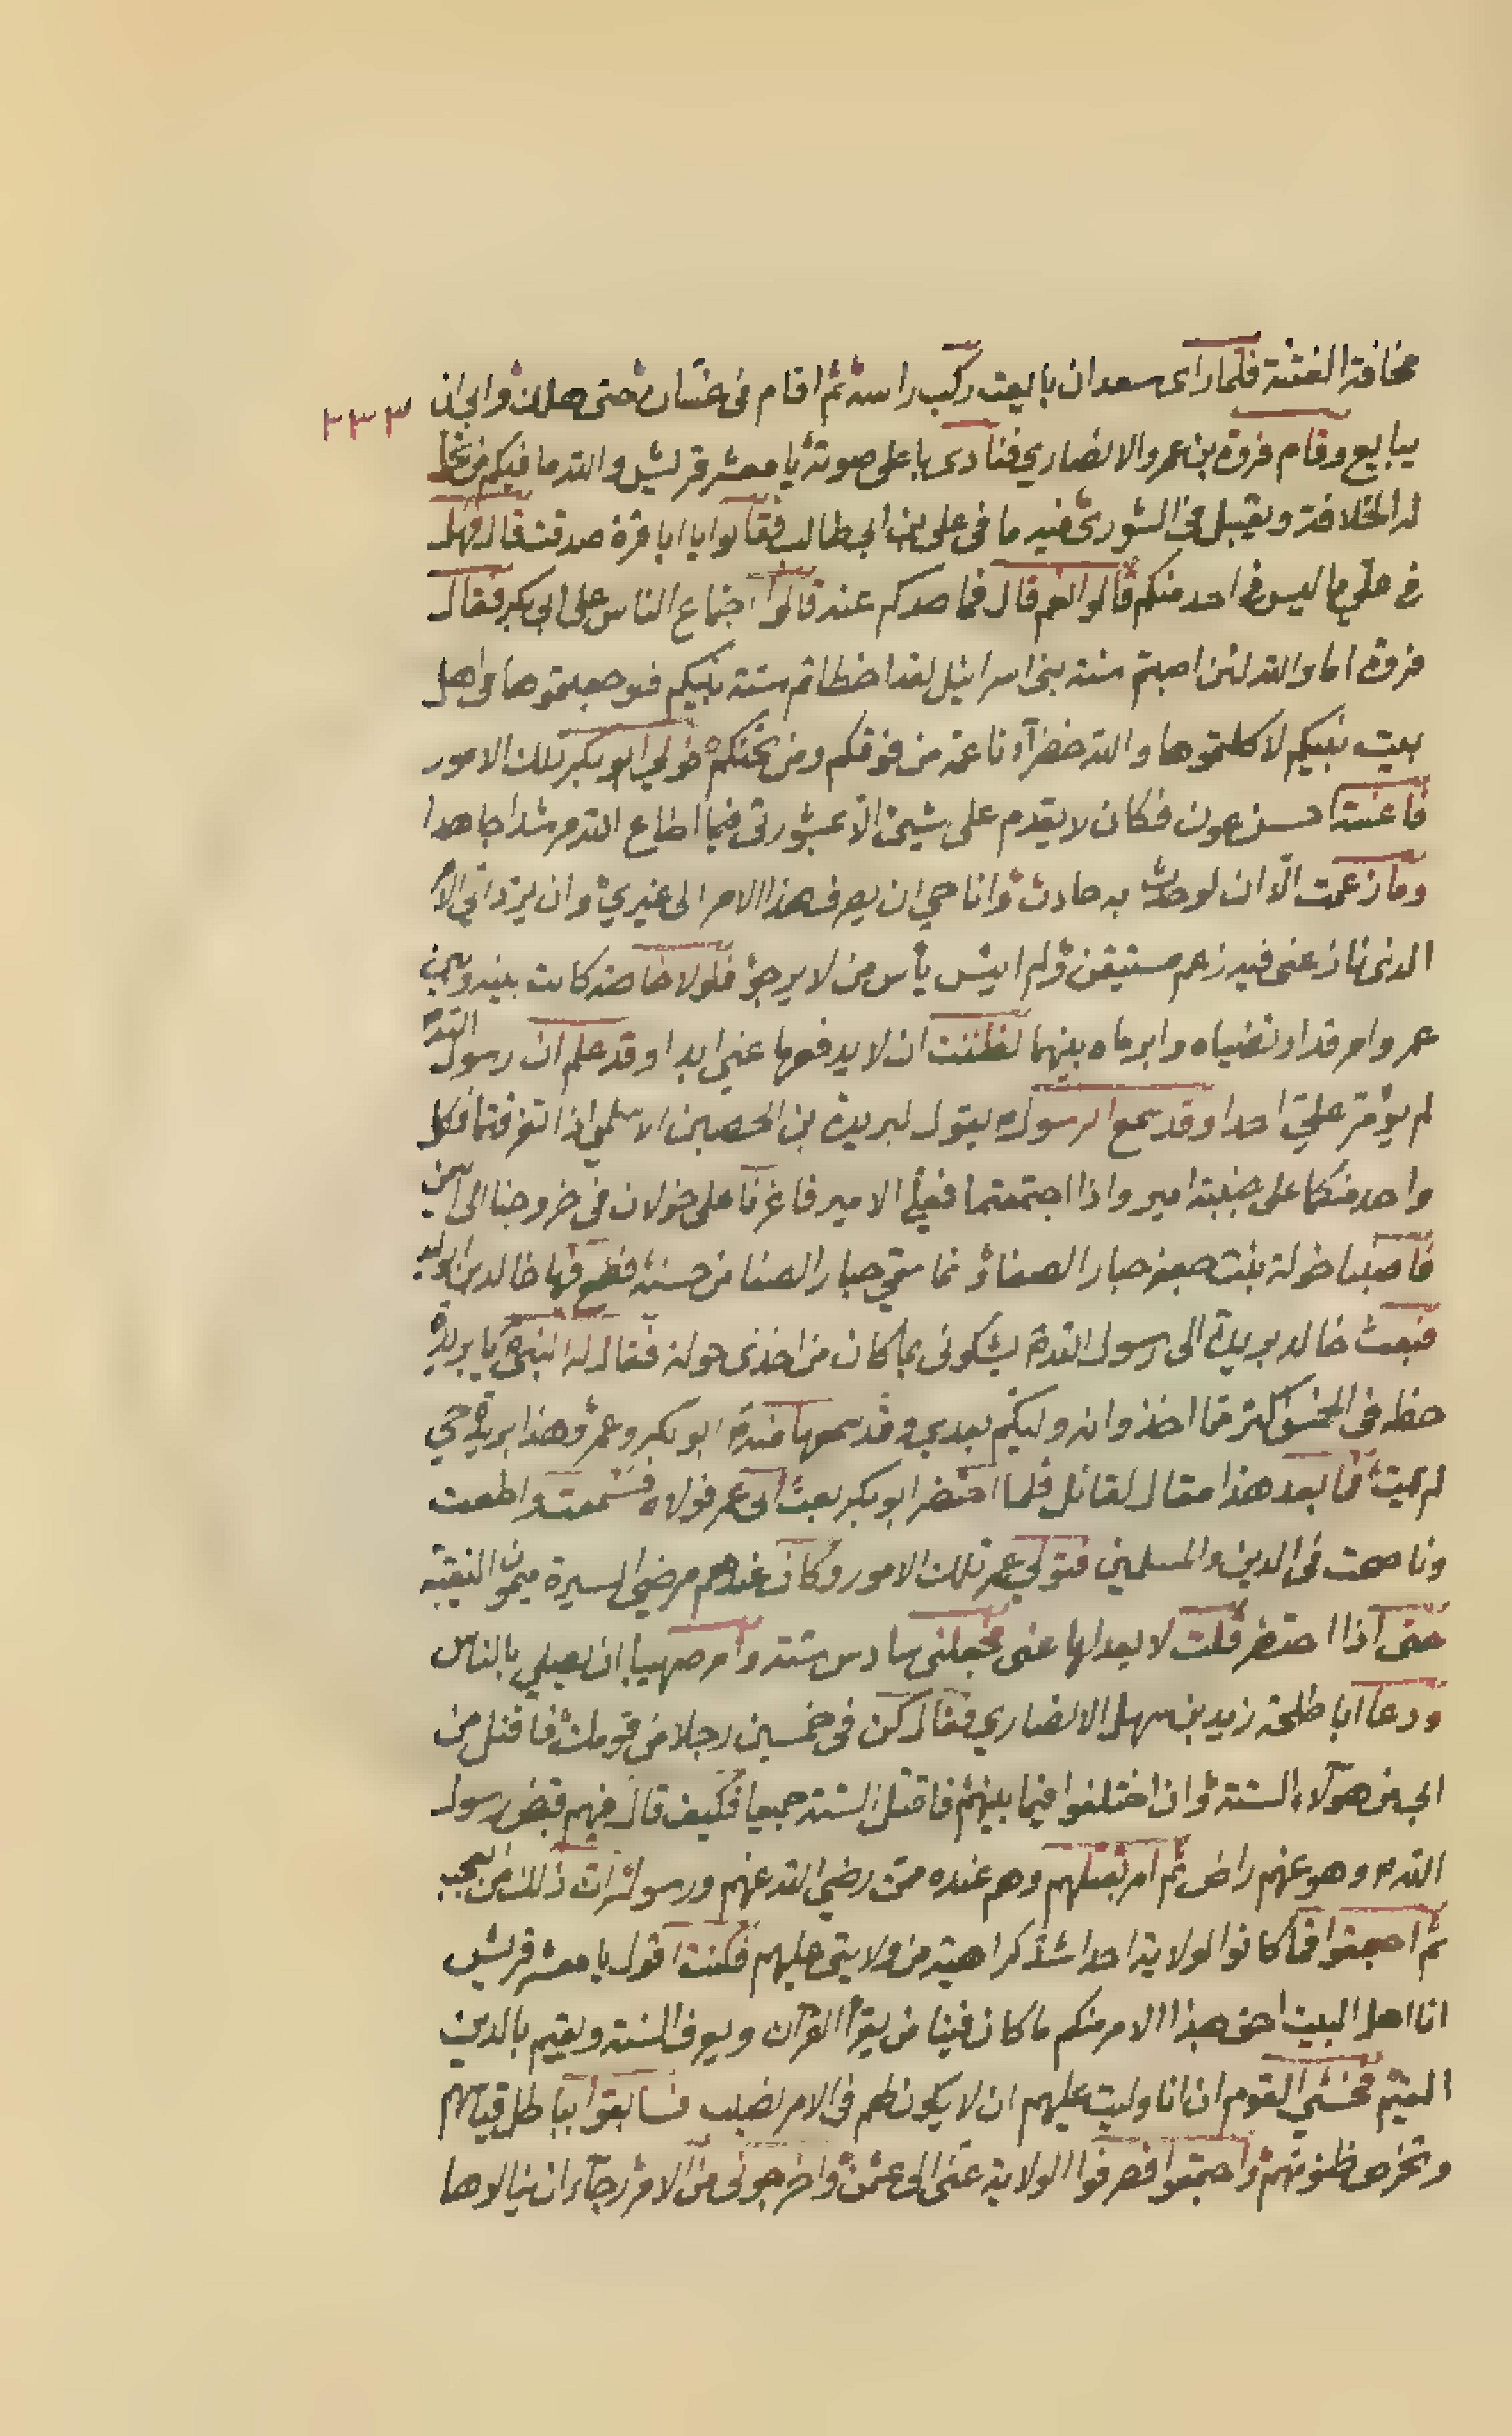 مخافة الفتنة فلما رای سعد ان بايعت ركب راسه ثم اقام فی غسان حتی هلك وابی ان
٢٣٣
يبايع وقام فروة بن عمرو الانصاري فنادی باعلی صوته يا معشر قريش والله ما فيكم من تحل
له الخلافة ويقبل فی الشوری فيه ما فی علی بن ابی طالب فقالوا يا ابا قرة صدقت قال فهل
فی علي ما ليس فی احد منكم قالوا نعم قال فما صدكم عنه قالوا اجتماع الناس علی ابی بكر فقال
فروة اما والله لئن اصبتم سنة بنی اسرائيل لقد اخطاتم سنة نبيكم فلو جعلتموها فی اهل
بيت نبيكم لاكلتموها والله خضرآء ناعمة من فوقكم ومن تحتكم فولی ابو بكر تلك الامور
فاعنته احسن عون فكان لا يقدم علی شیئ الا عشورتی فيما اطاع الله مرشدا جاهدا
وما زعمت الا ان لو حدث به حادث وانا حي ان يصرف هذا الامر الی غيري وان يرد الي الامر
الذی نازعنی فيه زعم مستيقن ولم ايئس يأس من لا يرجو فلولا خاصة كانت بينه وبين
عمر وامر قد ارتضياه وابرماه بينهما لظننت ان لا يدفعها عني ابدا وقد علم ان رسول الله
لم يؤمر علي احدا وقد سمع الرسول يقول لبريدة بن الحصين الاسلمی اذا تفرقتما فكل
واحد منكما علی جنبته امير واذا اجتمعتما فعلی الامير فاغرنا علی خولان فی خروجنا الی اليمن
فاصبنا خولة بنت جعفر جبار الصفا وانما سمی جبار الصفا من حسنه فظفرها خالد بن الوليد
فبعث خالد بريدة الی رسول الله يشكونی بما كان من اخذی خولة فقال له النبی يا بريدة
حظه فی الخمس اكثر مما اخذ وانه وليكم بعدي وقد سمعها منه ابو بكر وعمر وهذا بريدة حي
لم يمت فما بعد هذا مقال لقائل فلما احتضر ابو بكر بعث الی عمر فولاه فسمعت واطعت
وناصحت فی الدين والمسلمين فتولی عمر تلك الامور وكان عندهم مرضي السيرة ميمون النقيبة
حتی اذا احتضر قلت لا يعدلها عنی فجعلنی سادس ستة وامر صهيبا ان يصلی بالناس
ودعا ابا طلحة زيد بن سهل الانصاري فقال كن فی خمسين رجلا من قومك فاقتل من
ابی من هؤلاء الستة وان اختلفوا فيما بينهم فاقتل الستة جميعا فكيف قال فيهم قبض رسول
الله وهو عنهم راض ثم امر بقتلهم وهم عنده ممن رضی الله عنهم ورسوله ان ذلك من العجب
ثم اجمعوا فما كانوا لولاية احد اشد كراهية من ولايتی عليهم فكنت اقول يا معشر قريش
انا اهل البيت احق بهذا الامر منكم ما كان فينا من يقرأ القرآن ويعرف السنة ويقيم بالدين
القيم فخشي القوم ان انا وليت عليهم ان لا يكون لهم فی الامر نصيب فسابقوا بباطل قياسهم
وتخرص ظنونهم واجمعوا فصرفوا الولاية عنی الی عثمن واخرجونی من الامر رجآء ان ينالوها